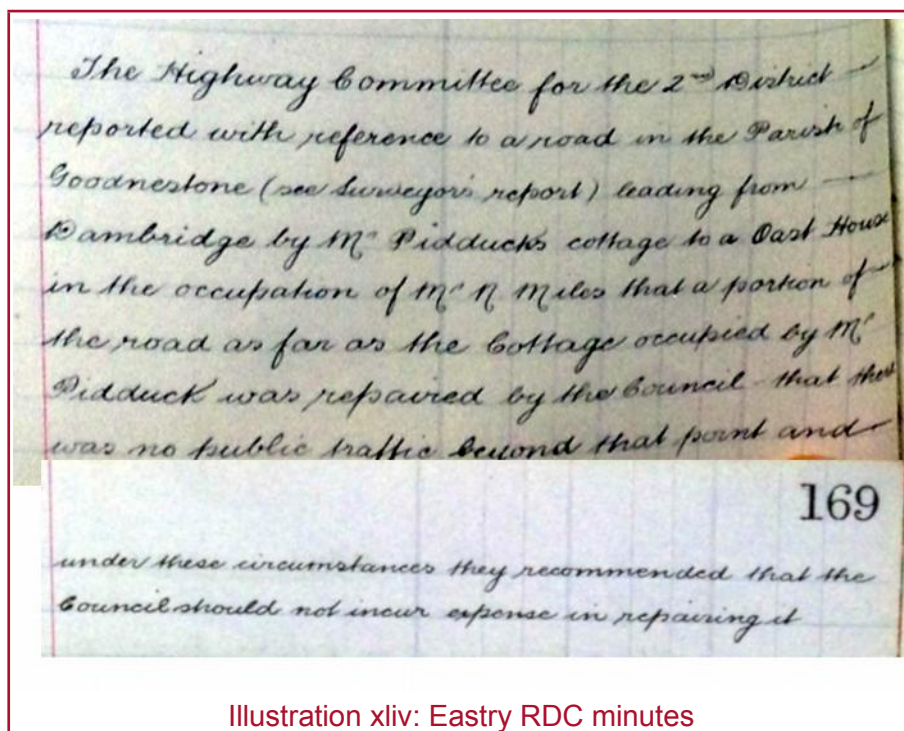 The Highway Committee for the 2nd District
reported with reference to a road in the Parish of
Goodnestone (see Surveyors report) leading from
Dambridge by Mr Pidducks cottage to a Oast House
in the occupation of Mr N Miles that a portion of
the road as far as the Cottage occupied by Mr
Pidduck was repaired by the Council - that there
was no public traffic beyond that point and
169
under these circumstances they recommended that the
Council should not incur expense in repairing it
Illustration xliv: Eastry RDC minutes